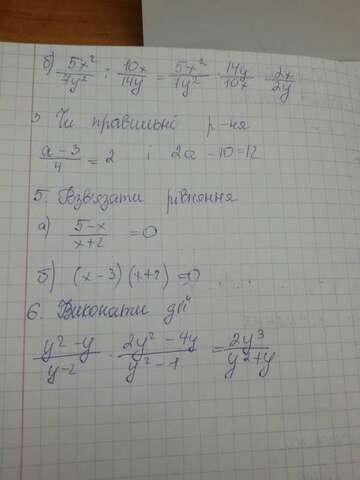 б) 5x²/7y² : 10x/14y = 5x²/7y² · 14y/10x = 2x/2y
3. Чи правильні р-ня
a-3/4 = 2 і 2a - 10 = 12
5. Взв'язати рівняння
а) 5-x/x+2 = 0
б) (x-3)(x+2) = 0
6. Виконати дії
y²-y/y-2 · 2y²-4y/y²-1 = 2y³/y²+y